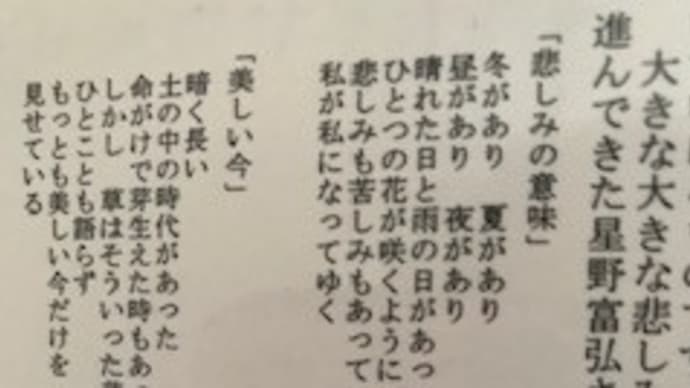 大きな大きな悲し
進んできた星野富弘
「悲しみの意味」
冬があり 夏があり
昼があり 夜があり
晴れた日と雨の日があっ
ひとつの花が咲くように
悲しみも苦しみもあって
私が私になってゆく
「美しい今」
暗く長い
土の中の時代があった
命がけで芽生えた時もあ
しかし 草はそういった
ひとことも語らず
もっとも美しい今だけを
見せている